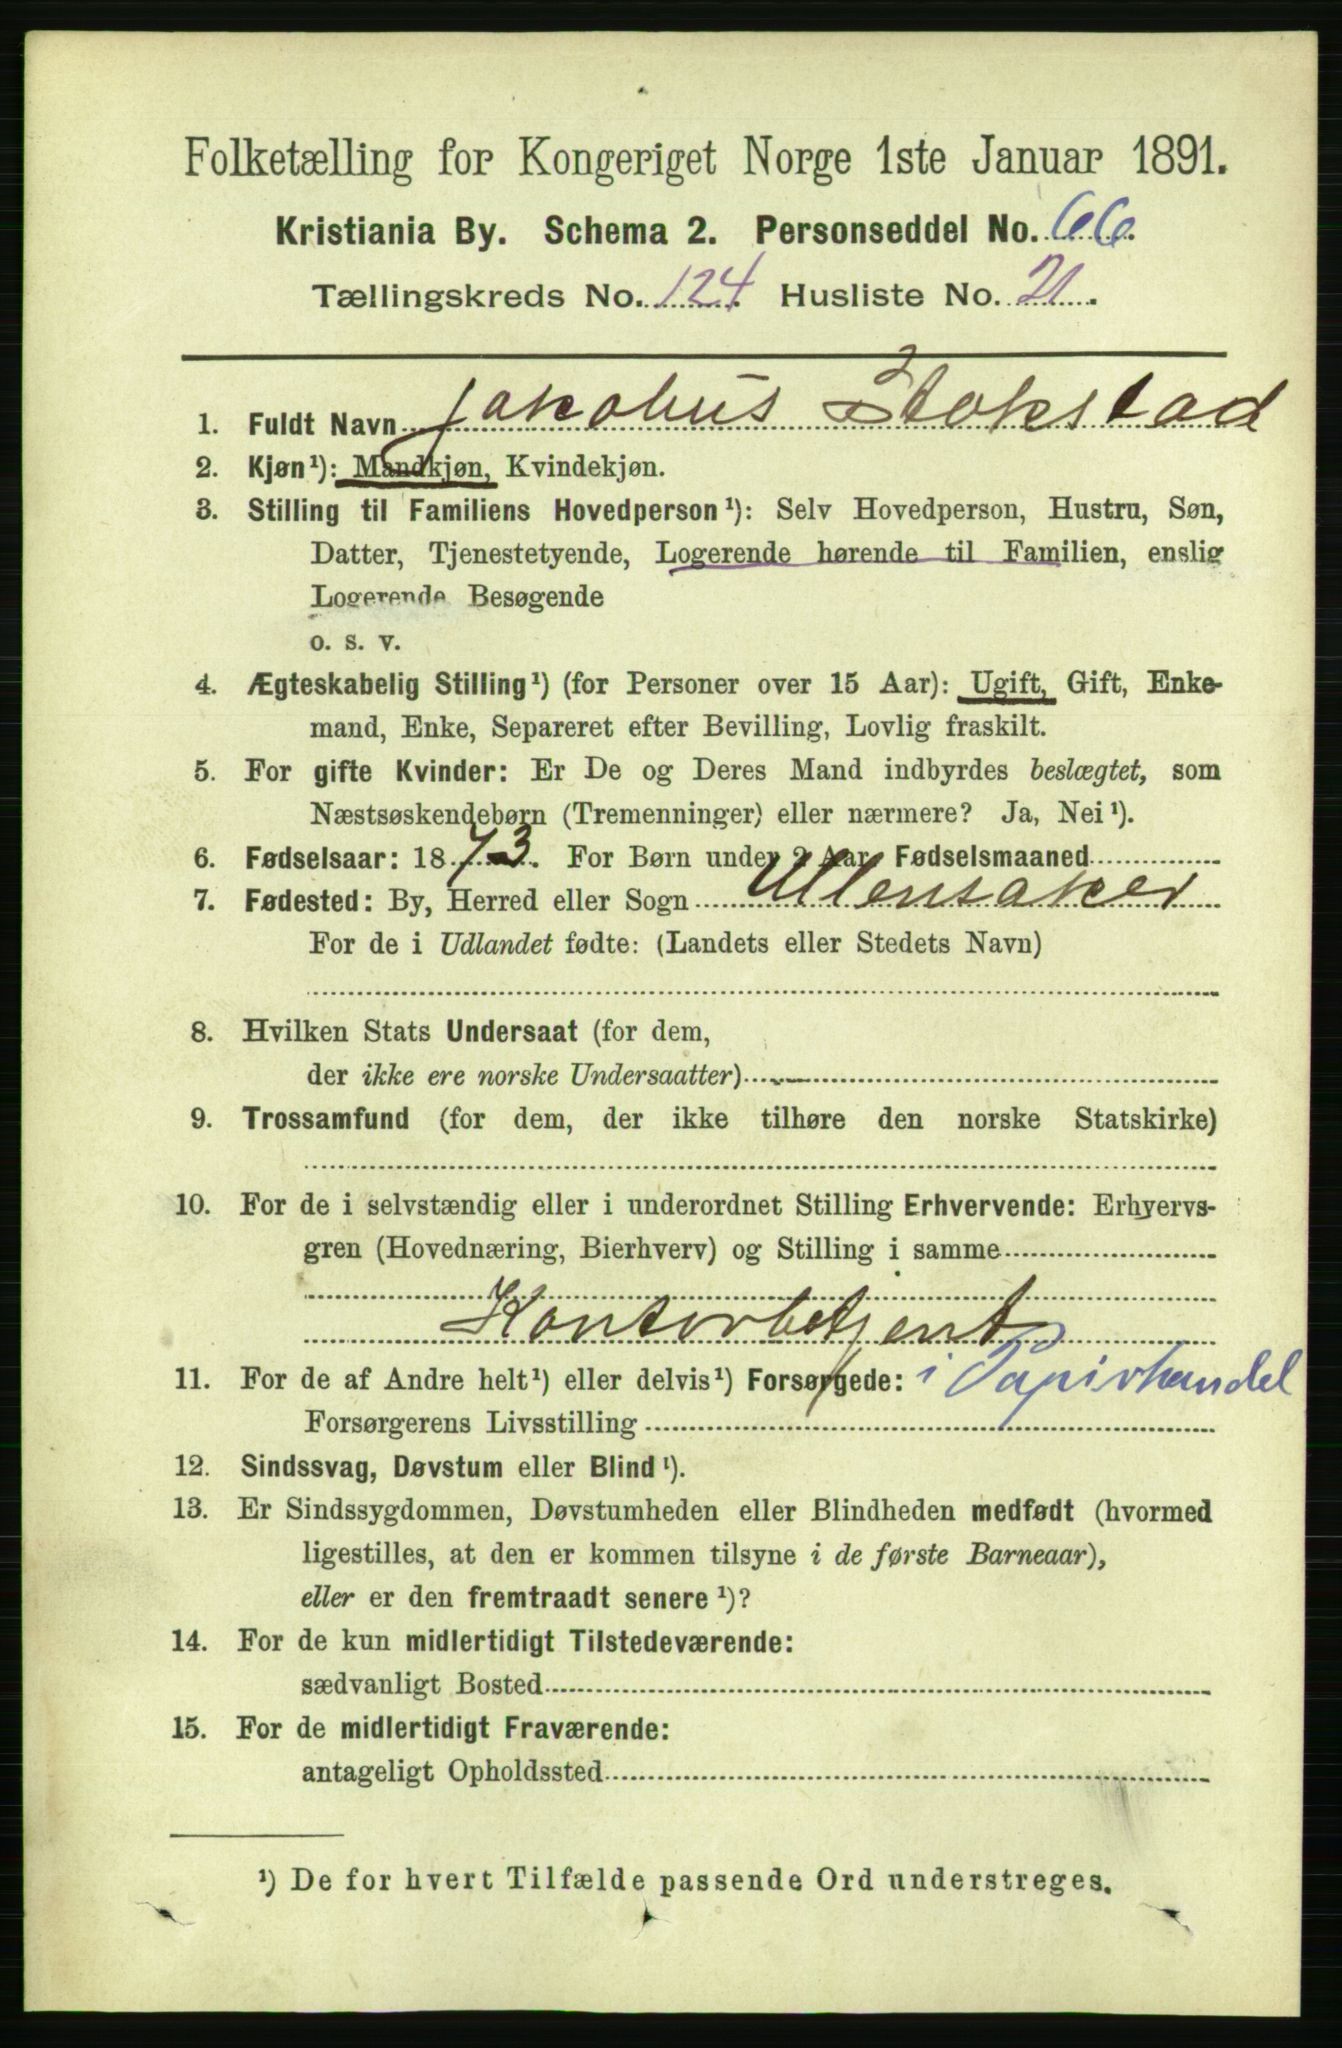 Folketælling for Kongeriget Norge 1ste Januar 1891.
Kristiania By. Schema 2. Personseddel No. 66.
Tællingskreds No. 124. Husliste No. 21.
1. Fuldt Navn Jakobus Stokstad
2. Kjøn¹): Mandkjøn, Kvindekjøn.
3. Stilling til Familiens Hovedperson¹): Selv Hovedperson, Hustru, Søn,
Datter, Tjenestetyende, Logerende hørende til Familien, enslig
Logerende Besøgende
o. s. v.
4. Ægteskabelig Stilling¹) (for Personer over 15 Aar): Ugift, Gift, Enke-
mand, Enke, Separeret efter Bevilling, Lovlig fraskilt.
5. For gifte Kvinder: Er De og Deres Mand indbyrdes beslægtet, som
Næstsøskendebørn (Tremenninger) eller nærmere? Ja, Nei¹).
6. Fødselsaar: 1873. For Børn under 2 Aar, Fødselsmaaned
7. Fødested: By, Herred eller Sogn Ullensaker
For de i Udlandet fødte: (Landets eller Stedets Navn)
8. Hvilken Stats Undersaat (for dem,
der ikke ere norske Undersaatter)
9. Trossamfund (for dem, der ikke tilhøre den norske Statskirke)
10. For de i selvstændig eller i underordnet Stilling Erhvervende: Erhvervs-
gren (Hovednæring, Bierhverv) og Stilling i samme
Kontorbetjent
11. For de af Andre helt¹) eller delvis¹) Forsørgede: i Papirhandel
Forsørgerens Livsstilling
12. Sindssvag, Døvstum eller Blind¹).
13. Er Sindssygdommen, Døvstumheden eller Blindheden medfødt (hvormed
ligestilles, at den er kommen tilsyne i de første Barneaar),
eller er den fremtraadt senere¹)?
14. For de kun midlertidigt Tilstedeværende:
sædvanligt Bosted
15. For de midlertidigt Fraværende:
antageligt Opholdssted
¹) De for hvert Tilfælde passende Ord understreges.